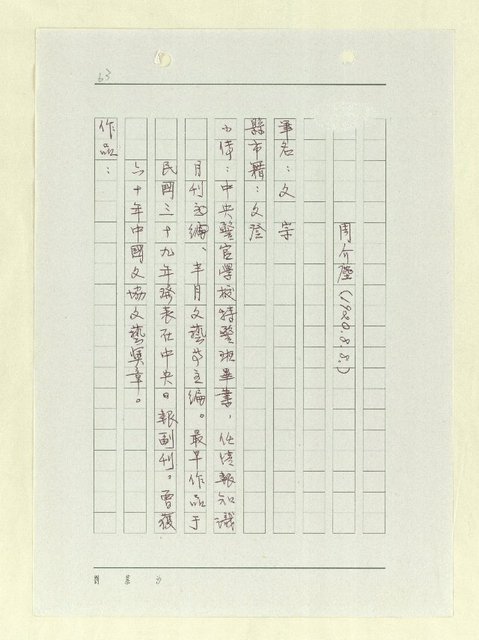 63
周介塵(1920.8.8.)
筆名：文岸
縣市籍：文登
小傳：中央警官學校特警班畢業，任情報知識
月刊主編、半月文藝等主編。最早作品于
民國三十九年發表在中央日報副刊。曾獲
六十年中國文協文藝獎章。
作品：